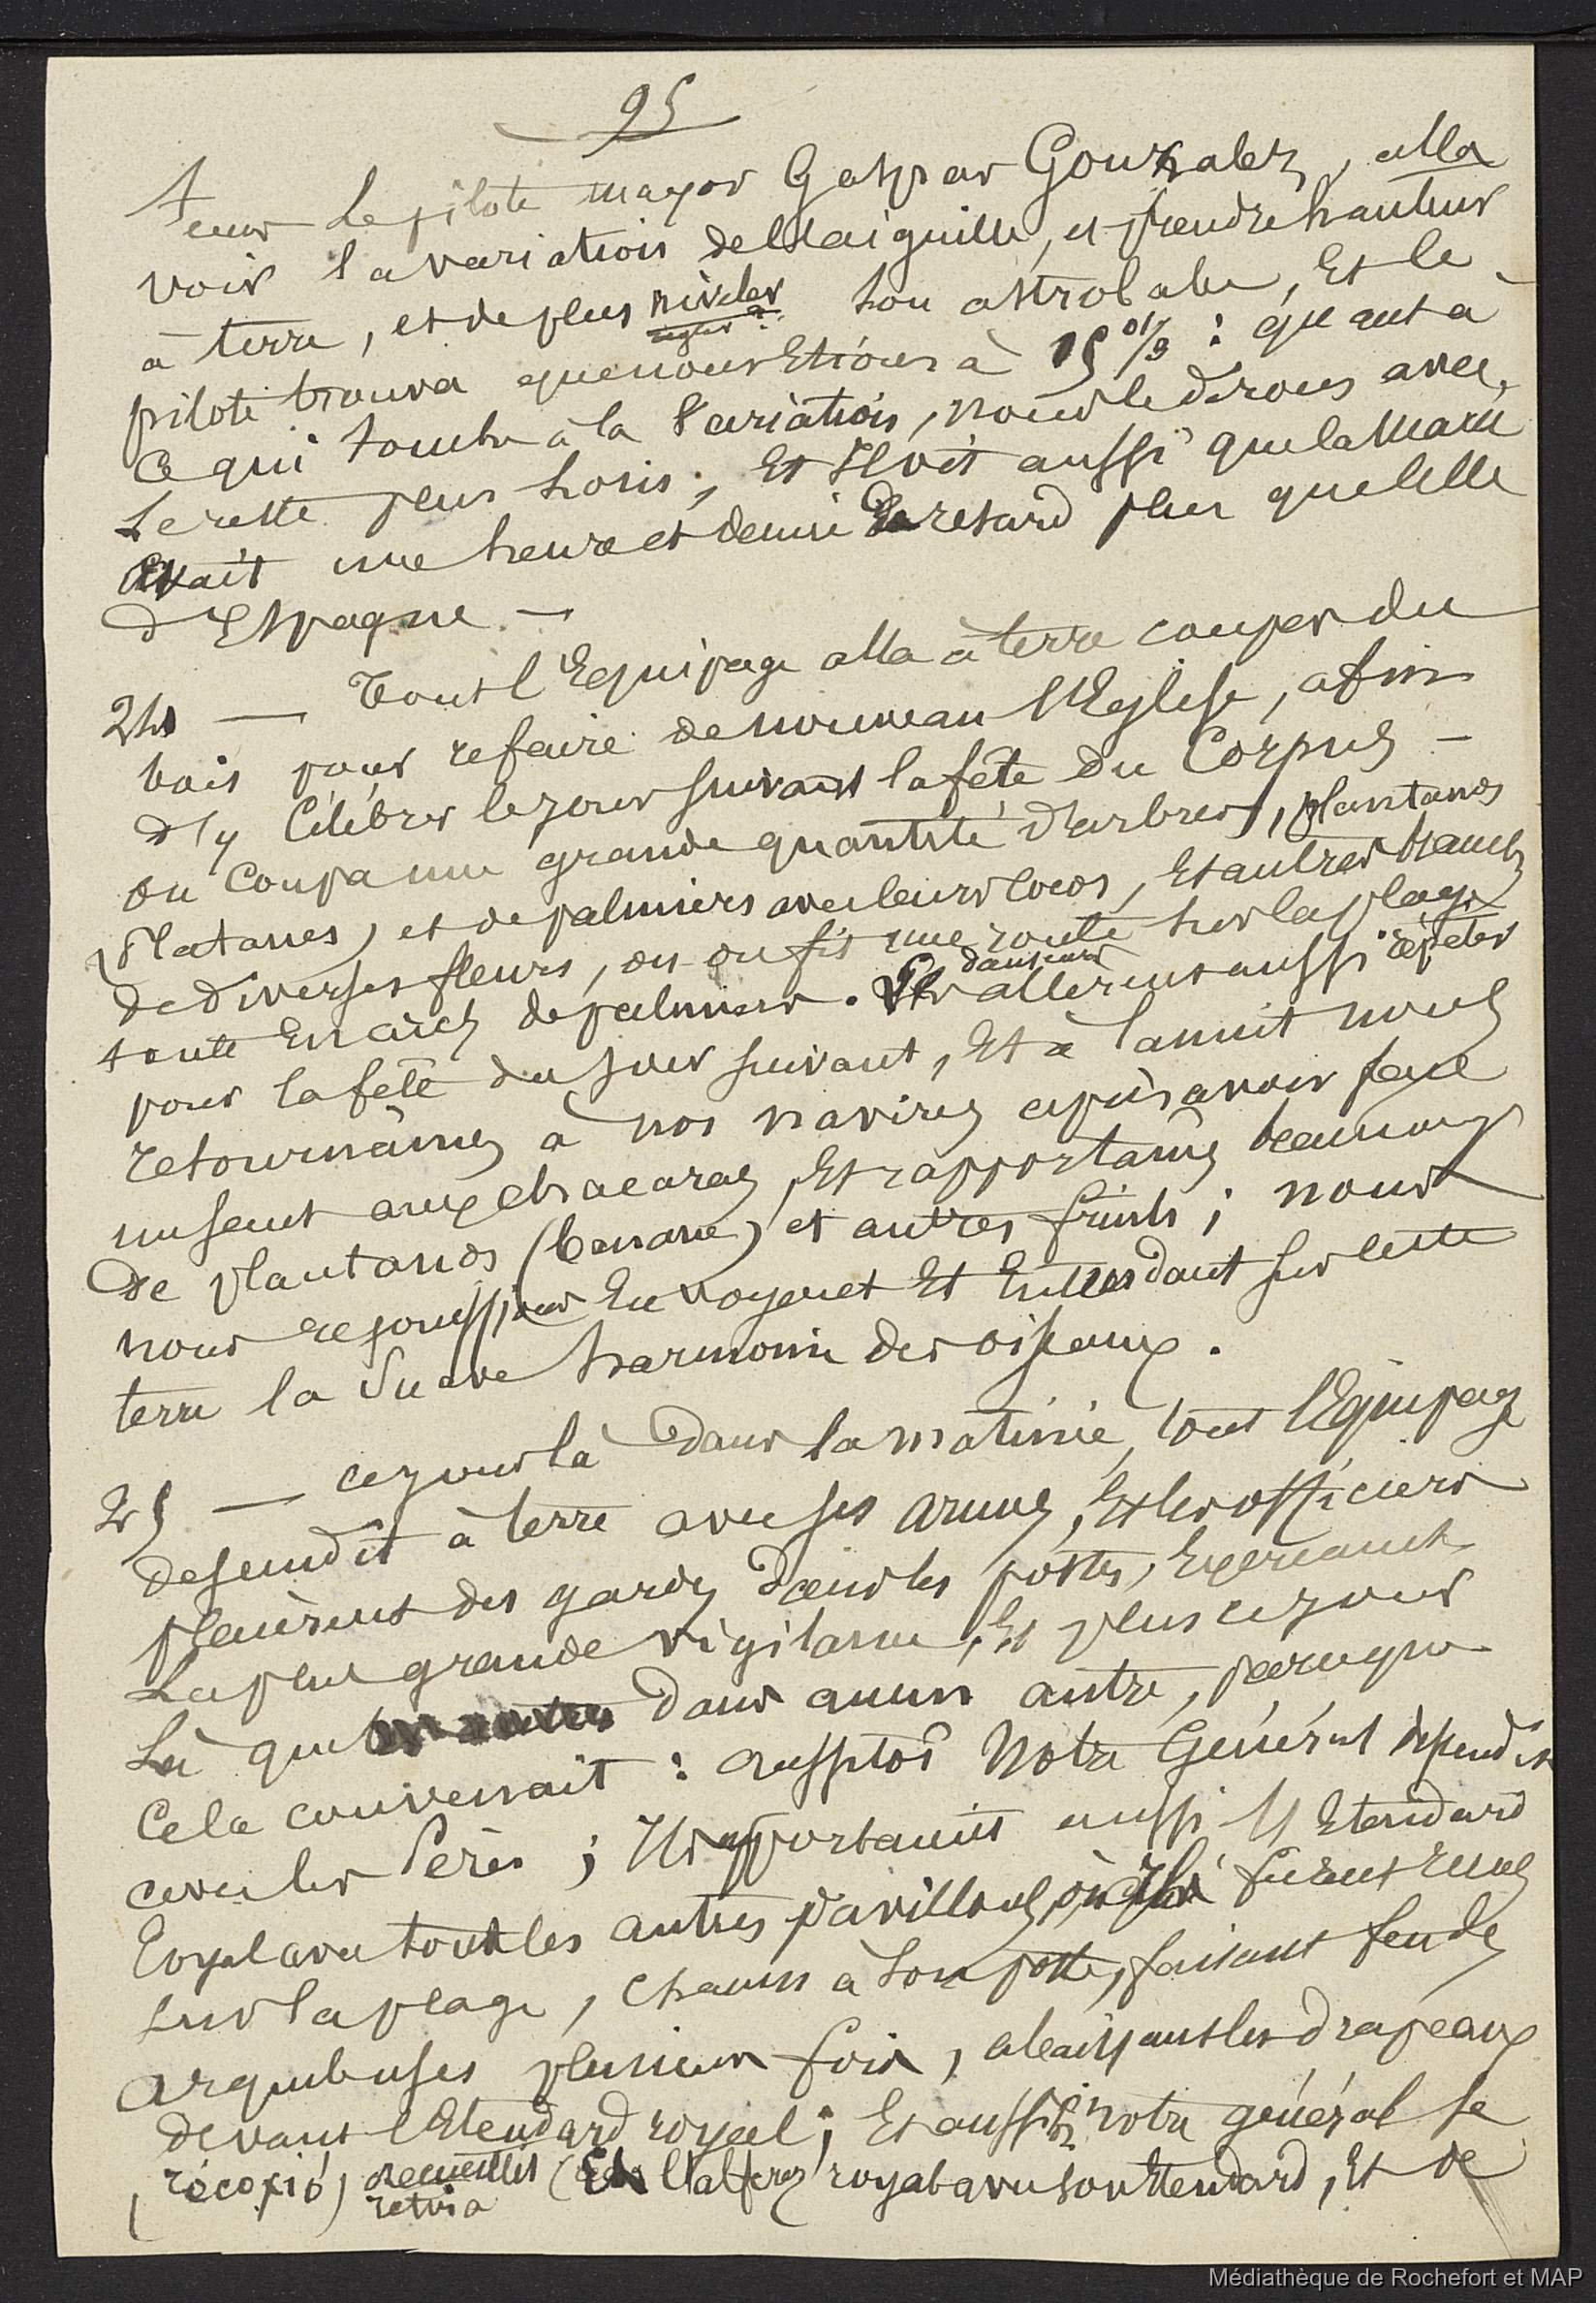 95
teur le pilote mayor Gaspar Gonzalez, alla
voir la variation de l'aiguille, et prendre hauteur
à terre, et de plus niveler son astrolabe, Et le
pilote trouva que nous Etions à 15 : quant à
ce qui touche à la Variation, nous le dirons avec
le reste plus loin ; Et Il vit aussi que la Marée
avait une heure et demie de retard plus que celle
d'Espagne —
24 — Tout l'Equipage alla à terre couper du
bois pour refaire de nouveau l'Eglise, afin
d'y Célébrer le jour suivant la fête du Corpus —
on coupa une grande quantité d'arbres, plantanos
(Platanes) et de palmiers avec leurs cocos, Et autres branches
de diverses fleurs, on en fit une route sur la plage
toute En arcs de palmiers. Les danseurs allèrent aussi répéter
pour la fête du jour suivant, Et à la nuit nous
retournâmes à nos navires après avoir fait
aux chacaras, Et rapportâmes beaucoup
de plantanos (banane) et autres fruits ; nous
nous rejouissions En voyant Et Entendant sur cette
terre la Suave harmonie des oiseaux.
25 — ce jour là dans la matinée, tout l'Equipage
descendit à terre avec ses armes, Et les officiers
placèrent des gardes dans les postes, Exerçant
la plus grande vigilance, Et plus ce jour
là que dans aucun autre, parce que
Cela convenait : aussitôt Notre Général descendit
avec les Pères ; Ils apportaient aussi l'Etendard
Royal avec tous les autres pavillons, où Ils furent reçus
sur la plage, chacun à son poste, faisant feu des
arquebuses plusieurs fois, abaissant les drapeaux
devant l'Etendard royal ; Et aussi notre général se
(recoxió) recueillit retira (Et l'alferez royal avec son Etendard, Et de
Médiathèque de Rochefort et MAP